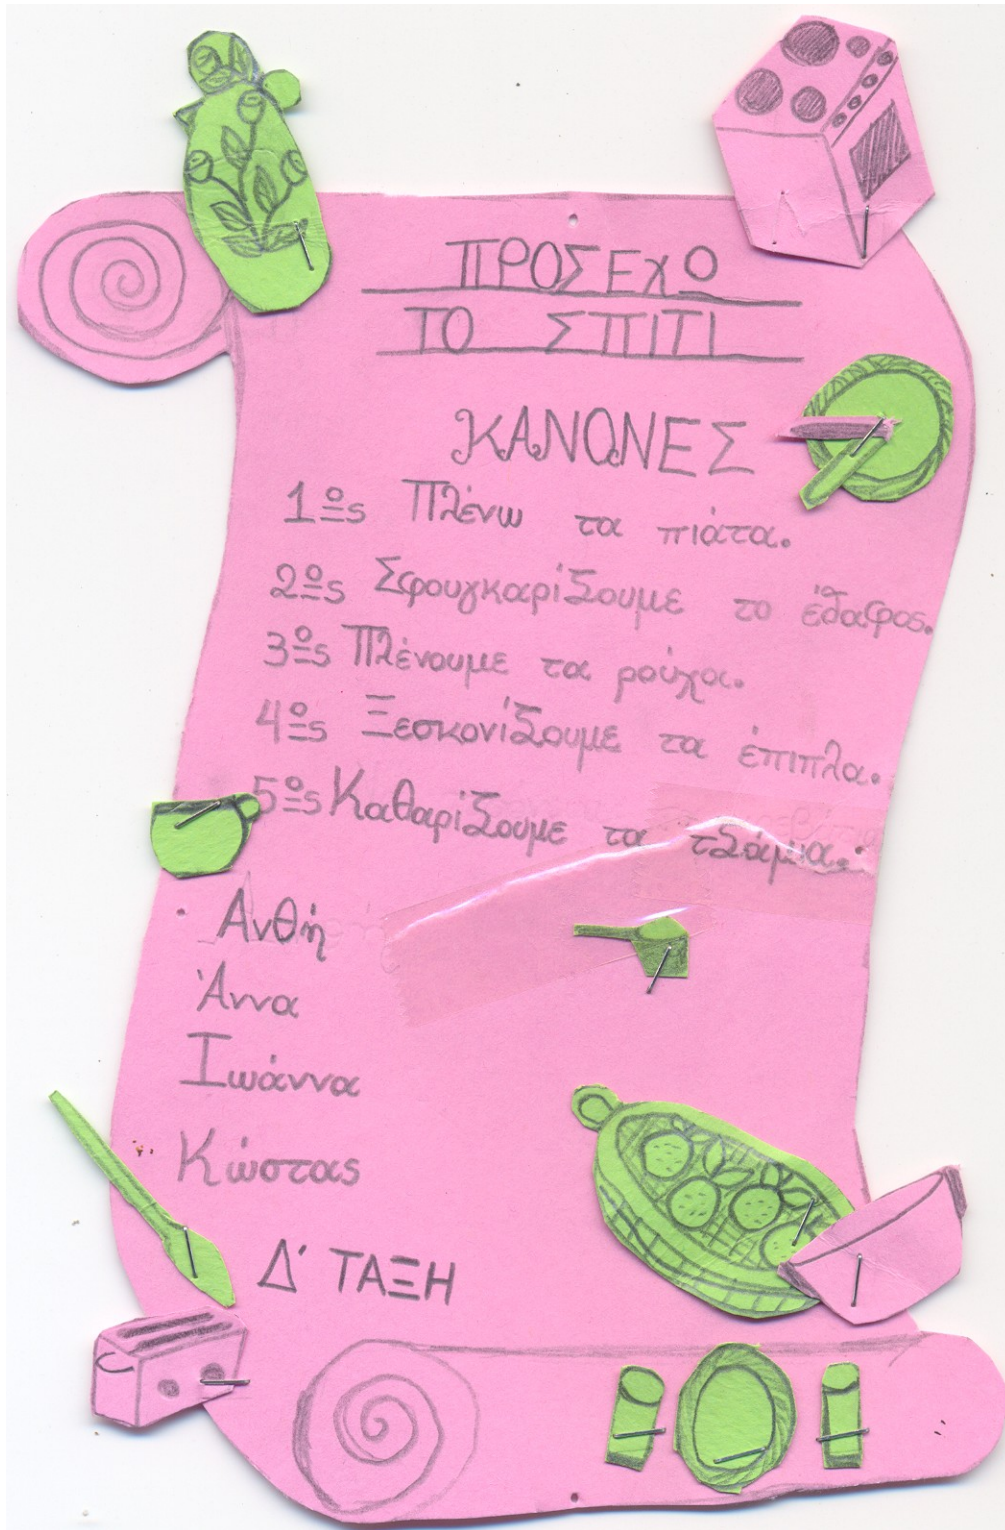 ΠΡΟΣΕΧΩ
ΤΟ ΣΠΙΤΙ
ΚΑΝΟΝΕΣ
1ος Πλένω τα πιάτα.
2ος Σφουγκαρίζουμε το έδαφος.
3ος Πλένουμε τα ρούχα.
4ος Ξεσκονίζουμε τα έπιπλα.
5ος Καθαρίζουμε τα τζάμια.
Ανθή
Άννα
Ιωάννα
Κώστας
Δ΄ ΤΑΞΗ